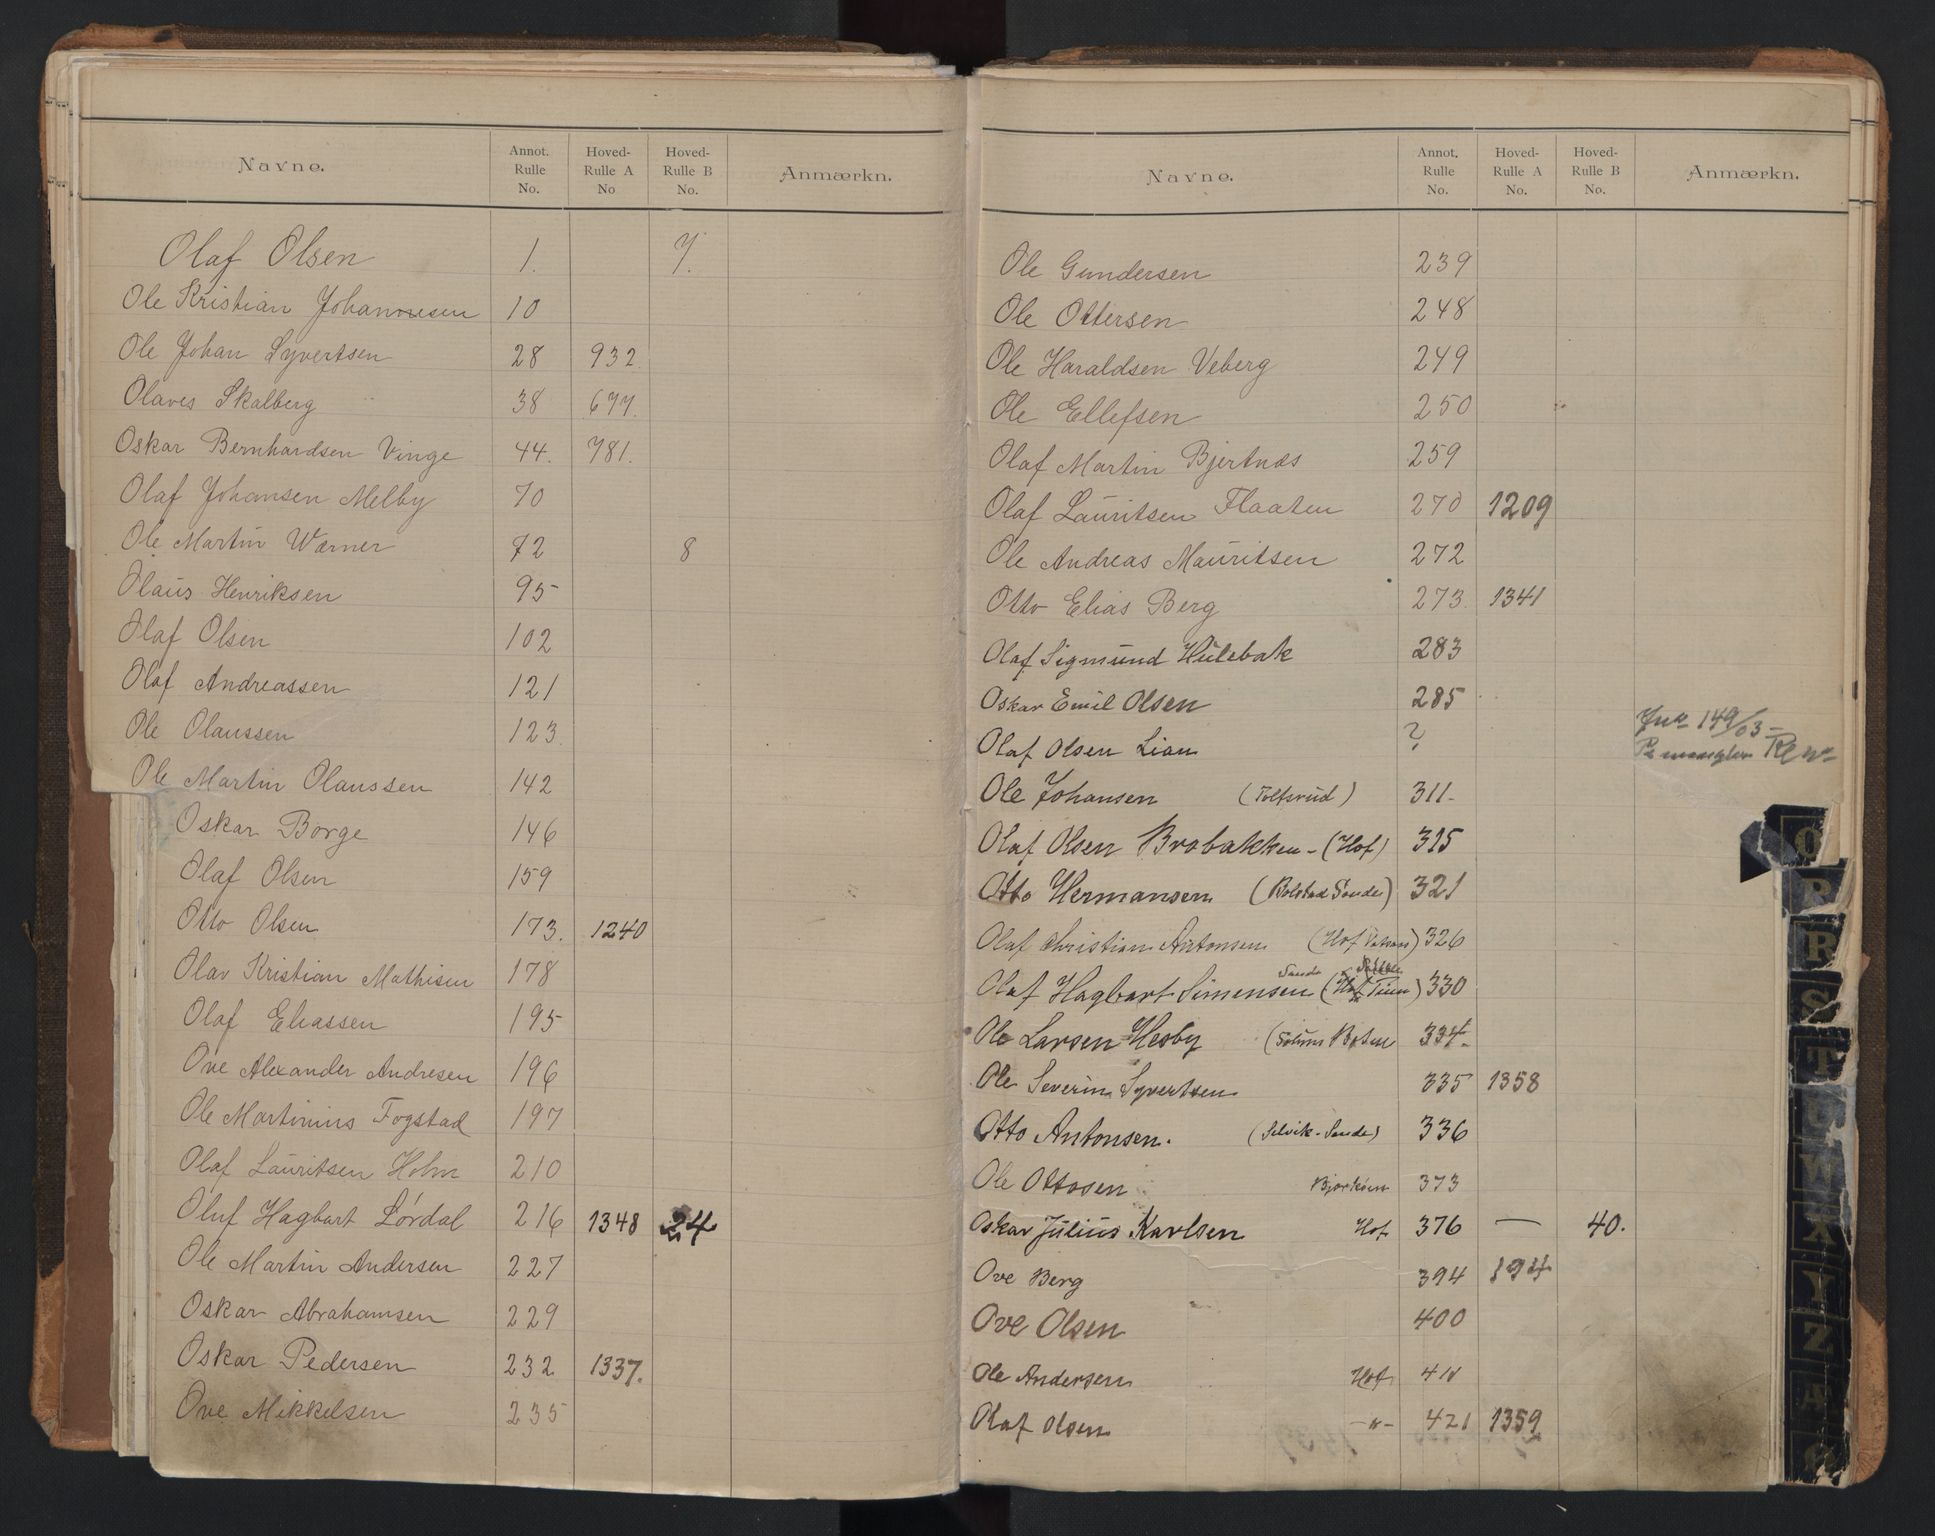 Navne. Annot. Rulle No. Hoved-Rulle A No Hoved-Rulle B No. Anmærkn.
Olaf Olsen 1. 7.
Ole Kristian Johannesen 10
Ole Johan Syvertsen 28 932.
Olaves Skalberg 38 677.
Oskar Bernhardsen Vinge 44. 781.
Olaf Johansen Melby 70
Ole Martin Wærner 72 8
Olaus Henriksen 95
Olaf Olsen 102
Olaf Andreassen 121
Ole Olaussen 123.
Ole Martin Olaussen 142
Oskar Borge 146
Olaf Olsen 159
Otto Olsen 173. 1240
Olav Kristian Mathisen 178
Olaf Eliassen 195
Ove Alexander Andresen 196
Ole Martinius Fogstad 197
Olaf Lauritsen Holm 210
Oluf Hagbart Lørdal 216 1348 24
Ole Martin Andersen 227
Oskar Abrahamsen 229
Oskar Pedersen 232 1337.
Ove Mikkelsen 235
Navne. Annot. Rulle No. Hoved-Rulle A No. Hoved-Rulle B No. Anmærkn.
Ole Gundersen 239
Ole Ottersen 248
Ole Haraldsen Veberg 249
Ole Ellefsen 250
Olaf Martin Bjertnæs 259
Olaf Lauritsen Flaaten 270 1209
Ole Andreas Mauritsen 272
Otto Elias Berg 273. 1341
Olaf Sigmund Hulebak 283
Oskar Emil Olsen 285
Olaf Olsen Lian ? 149/03
Ole Johansen (Tolfsrud) 311.
Olaf Olsen Brobakken - (Hof) 315
Otto Hermansen (Rolstad Sande) 321
Olaf Christian Antonsen (Hof) 326
Olaf Hagbart Simensen Sande 330
Ole Larsen Hesby 334.
Ole Severin Syvertsen 335 1358
Otto Antonsen. (Selvik - Sande) 336
Ole Ottosen 373
Oskar Julius Karlsen Hof 376 — 40.
Ove Berg 394 194
Ove Olsen 400
Ole Andersen Hof
Olaf Olsen -"- 421 1359
O
P
R
S
T
U
W
X
Y
Z